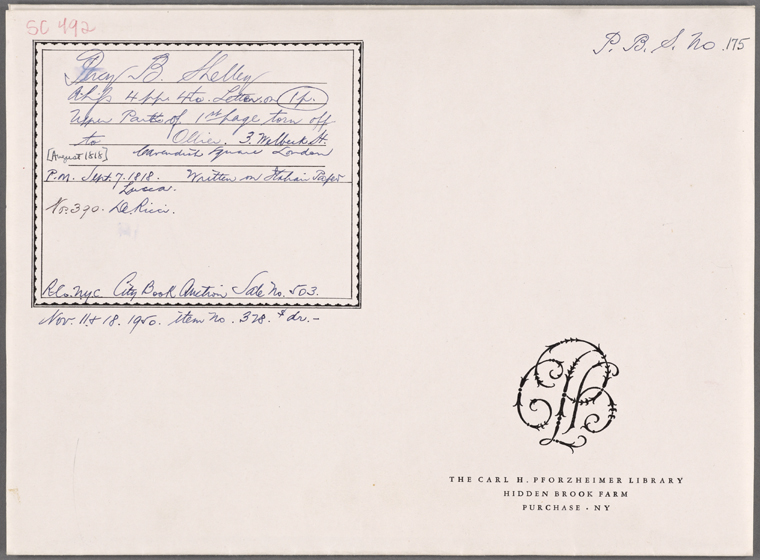 SC 492
P. B. S. No. 175
Percy B. Shelley
A.L.S. 4 pp. 4to. Letter on 1 p.
Upper Part of 1st page torn off
to Ollier. 3. Welbeck St.
[August 1818] Cavendish Square London
P.M. Sept. 7. 1818. Written on Italian Paper
Lucca.
No. 390. De Ricci.
N.Y.C. City Book Auction Sale No. 503.
Nov. 11 & 18. 1950. item no. 378.
THE CARL H. PFORZHEIMER LIBRARY
HIDDEN BROOK FARM
PURCHASE · NY